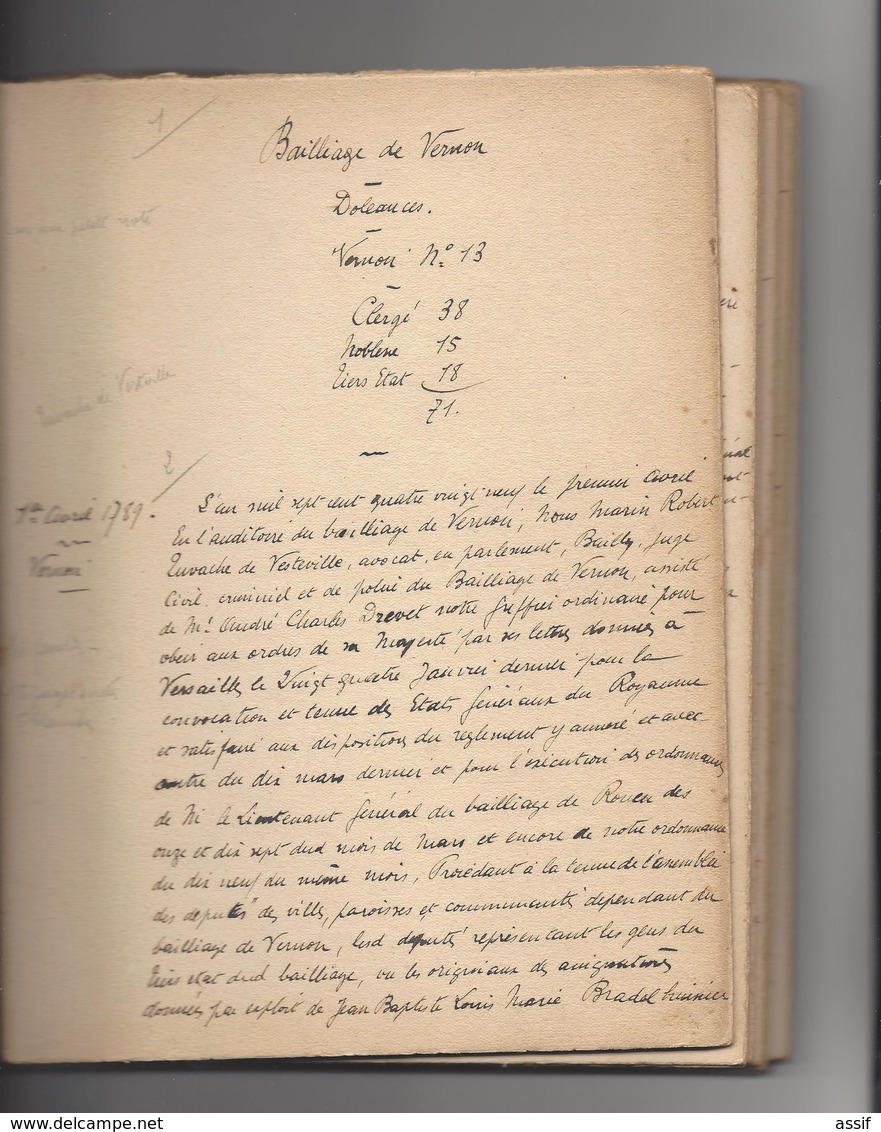 1
Bailliage de Vernon
Doleances.
Vernon N° 13
Clergé 38
Noblesse 15
Tiers Etat 18
71.
petit note
Euvache de Vesteville
2
1er Avril 1789.
Vernon
L'an mil sept cent quatre vingt neuf le premier avril
En l'auditoire du bailliage de Vernon, Nous Marin Robert
Euvache de Vesteville, avocat, en parlement, Bailly, juge
Civil, criminel et de police du Bailliage de Vernon, assisté
de Me André Charles Drevet notre greffier ordinaire pour
obeir aux ordres de sa Majesté par ses lettres données à
Versailles le Vingt quatre Janvier dernier pour la
convocation et tenue des Etats Généraux du Royaume
et satisfaire aux dispositions du reglement y annexé et avec
du dix mars dernier et pour l'exécution des ordonnances
de M. le Lieutenant Général du bailliage de Rouen des
onze et dix sept dud mois de Mars et encore de notre ordonnance
du dix neuf du même mois, Procédant à la tenue de l'assemblée
des deputés des villes, paroisses et communautés dependant du
bailliage de Vernon, lesd deputés représentant les gens du
tiers etat dud bailliage, vu les originaux des assignations
données par exploit de Jean Baptiste Louis Marie Bradel huissier
assif